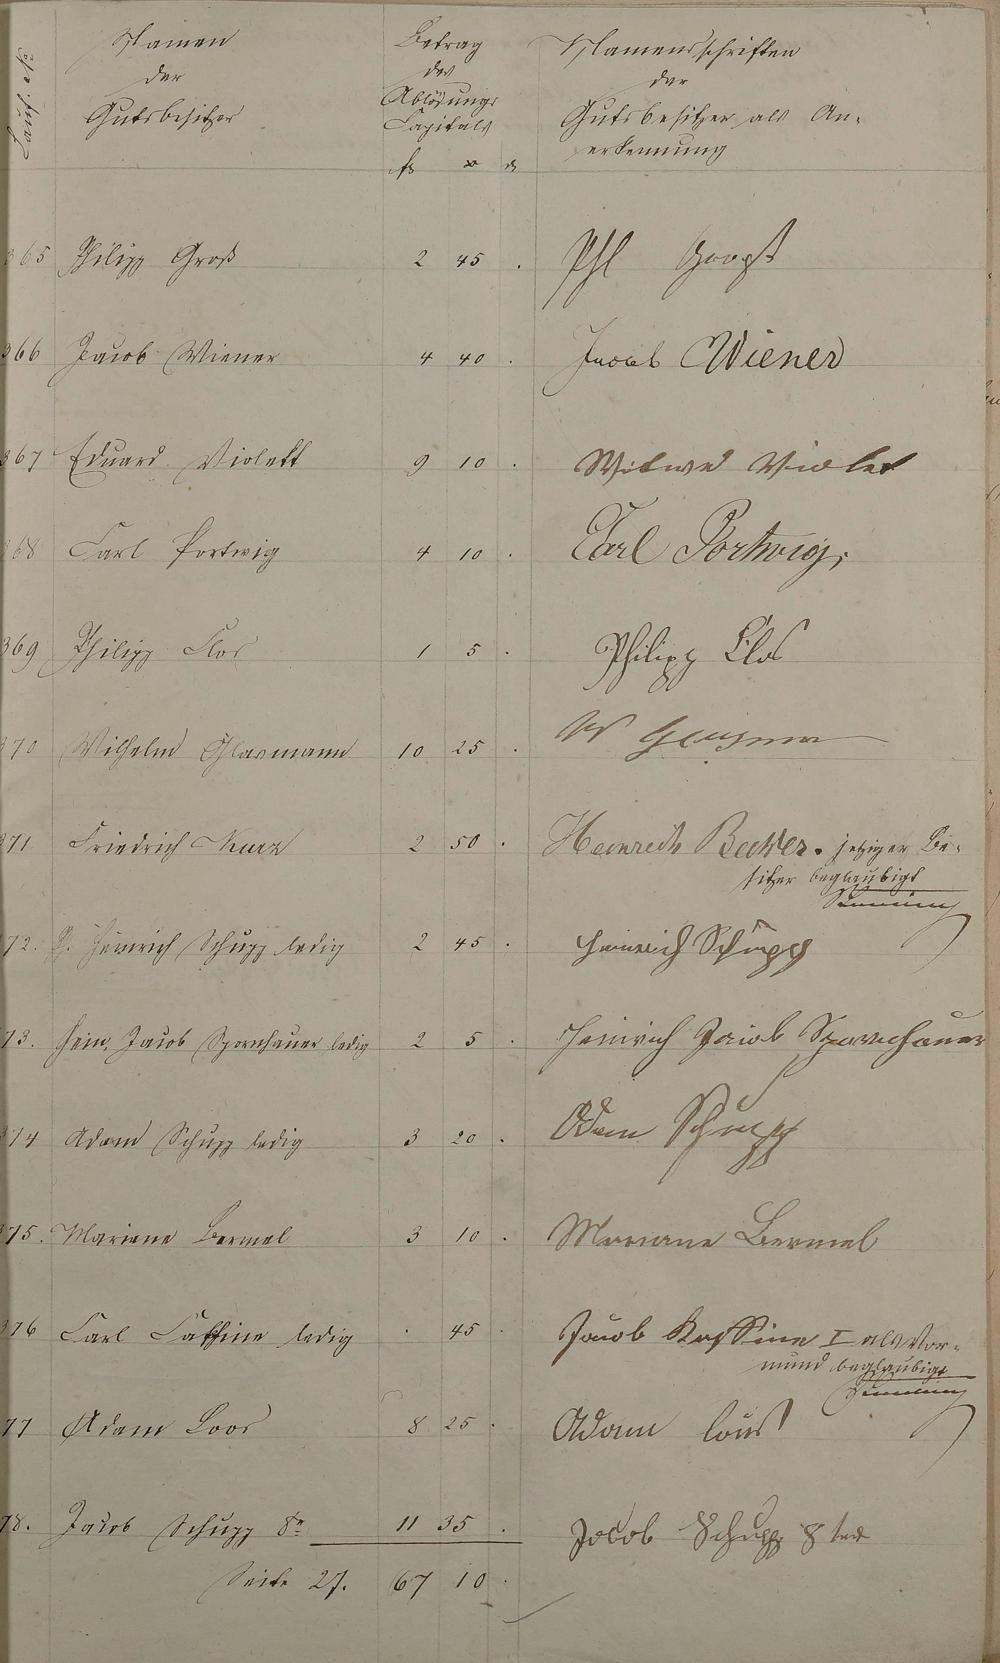 Lauf. No
Namen
der
Gutsbesitzer
Betrag
des
Ablösungs
Capitals
fl x d
Namensschriften
der
Gutsbesitzer als An-
erkennung
365 Philipp Groß 2 45 . Phl
366 Jacob Wiener 4 40 . Jacob Wiener
367 Eduard Violett 9 10 . Witwe Violet
368 Carl Portwig 4 10 . Carl Portwig,
369 Philipp Clos 1 5 . Philipp Clos
370 Wilhelm 10 25 . W
371 Friedrich Kurz 2 50 . Heinrich Becker. jetziger Be-
sitzer beglaubigt
72. Heinrich Schupp ledig 2 45 . Heinrich Schupp
73. Hein. Jacob Spornhauer ledig 2 5 . Heinrich Jacob Spornhauer
374 Adam Schupp ledig 3 20 . Adam Schupp
375. Mariane Bermel 3 10 . Mariane Bermel
376 Carl Cassine ledig . 45 . Jacob Kassine I als Vor-
mund beglaubigt
77 Adam Loos 8 25 . Adam Lous
78. Jacob Schupp 8r 11 35 . Jacob Schupp 8ter
Seite 27. 67 10 .